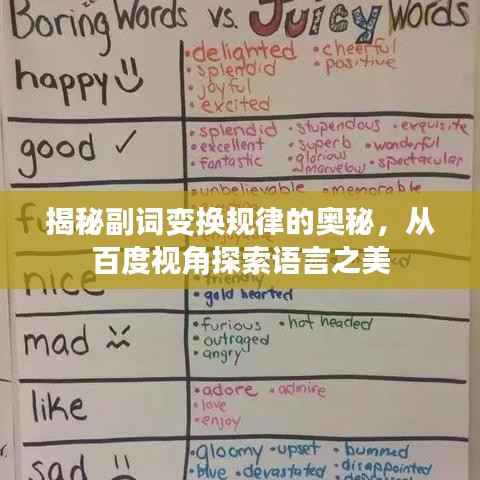 Boring Words vs. Juicy Words
happy
•delighted •cheerful
•splendid •positive
•joyful
•excited
good ✓
•splendid •stupendous •exquisite
•excellent •superb •wonderful
•fantastic •glorious •spectacular
marvelous
•unbelievable •memorable
揭秘副词变换规律的奥秘，从
百度视角探索语言之美
nice
friendly
•gold hearted
mad
•furious •hot headed
•outraged
•angry
like
•adore •admire
•love
•enjoy
sad
•gloomy •upset •bummed
•blue •devastated •disappointed